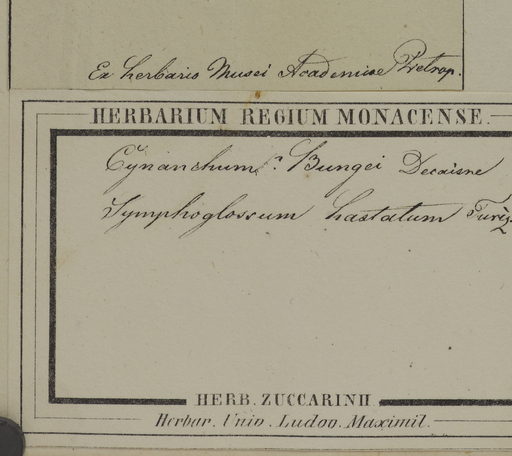 Ex herbario Musei Academiae Petrop.
HERBARIUM REGIUM MONACENSE.
Cynanchum Bungei Decaisne
Symphoglossum hastatum Turcz.
HERB. ZUCCARINII.
Herbar. Univ. Ludov. Maximil.